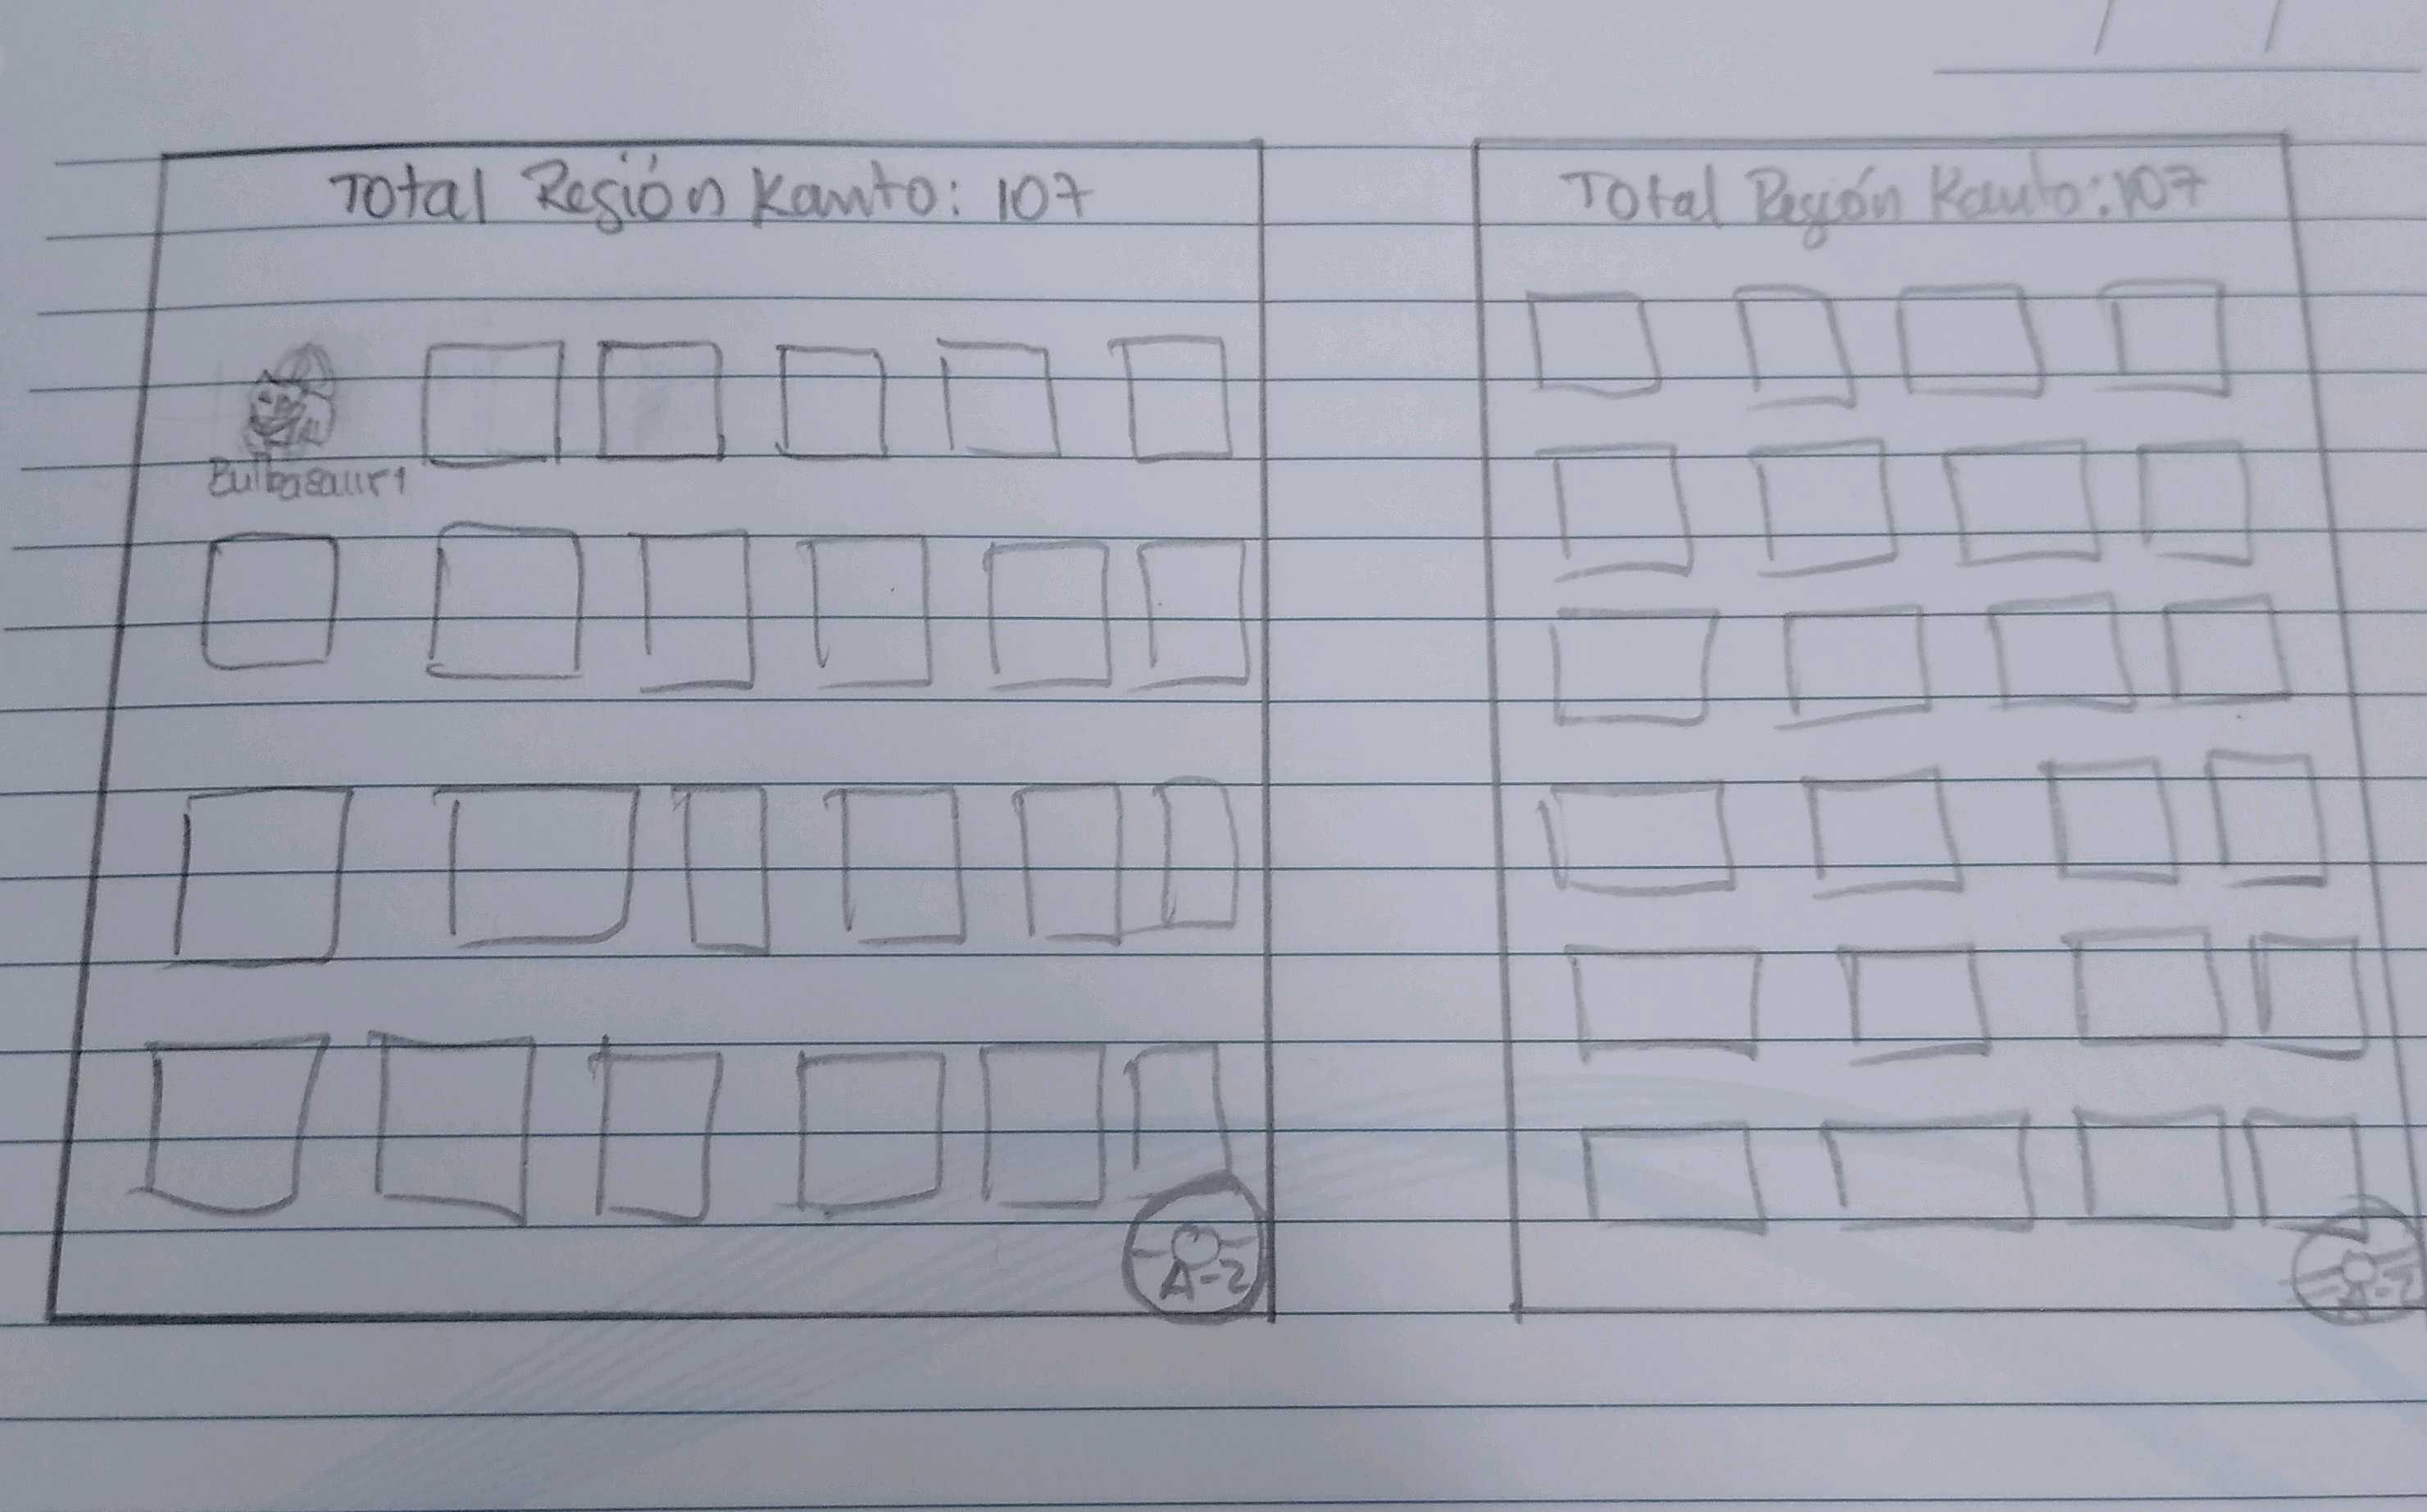 Total Región Kanto: 107
Bulbasaur 1
A-2
Total Región Kanto: 107
A-2